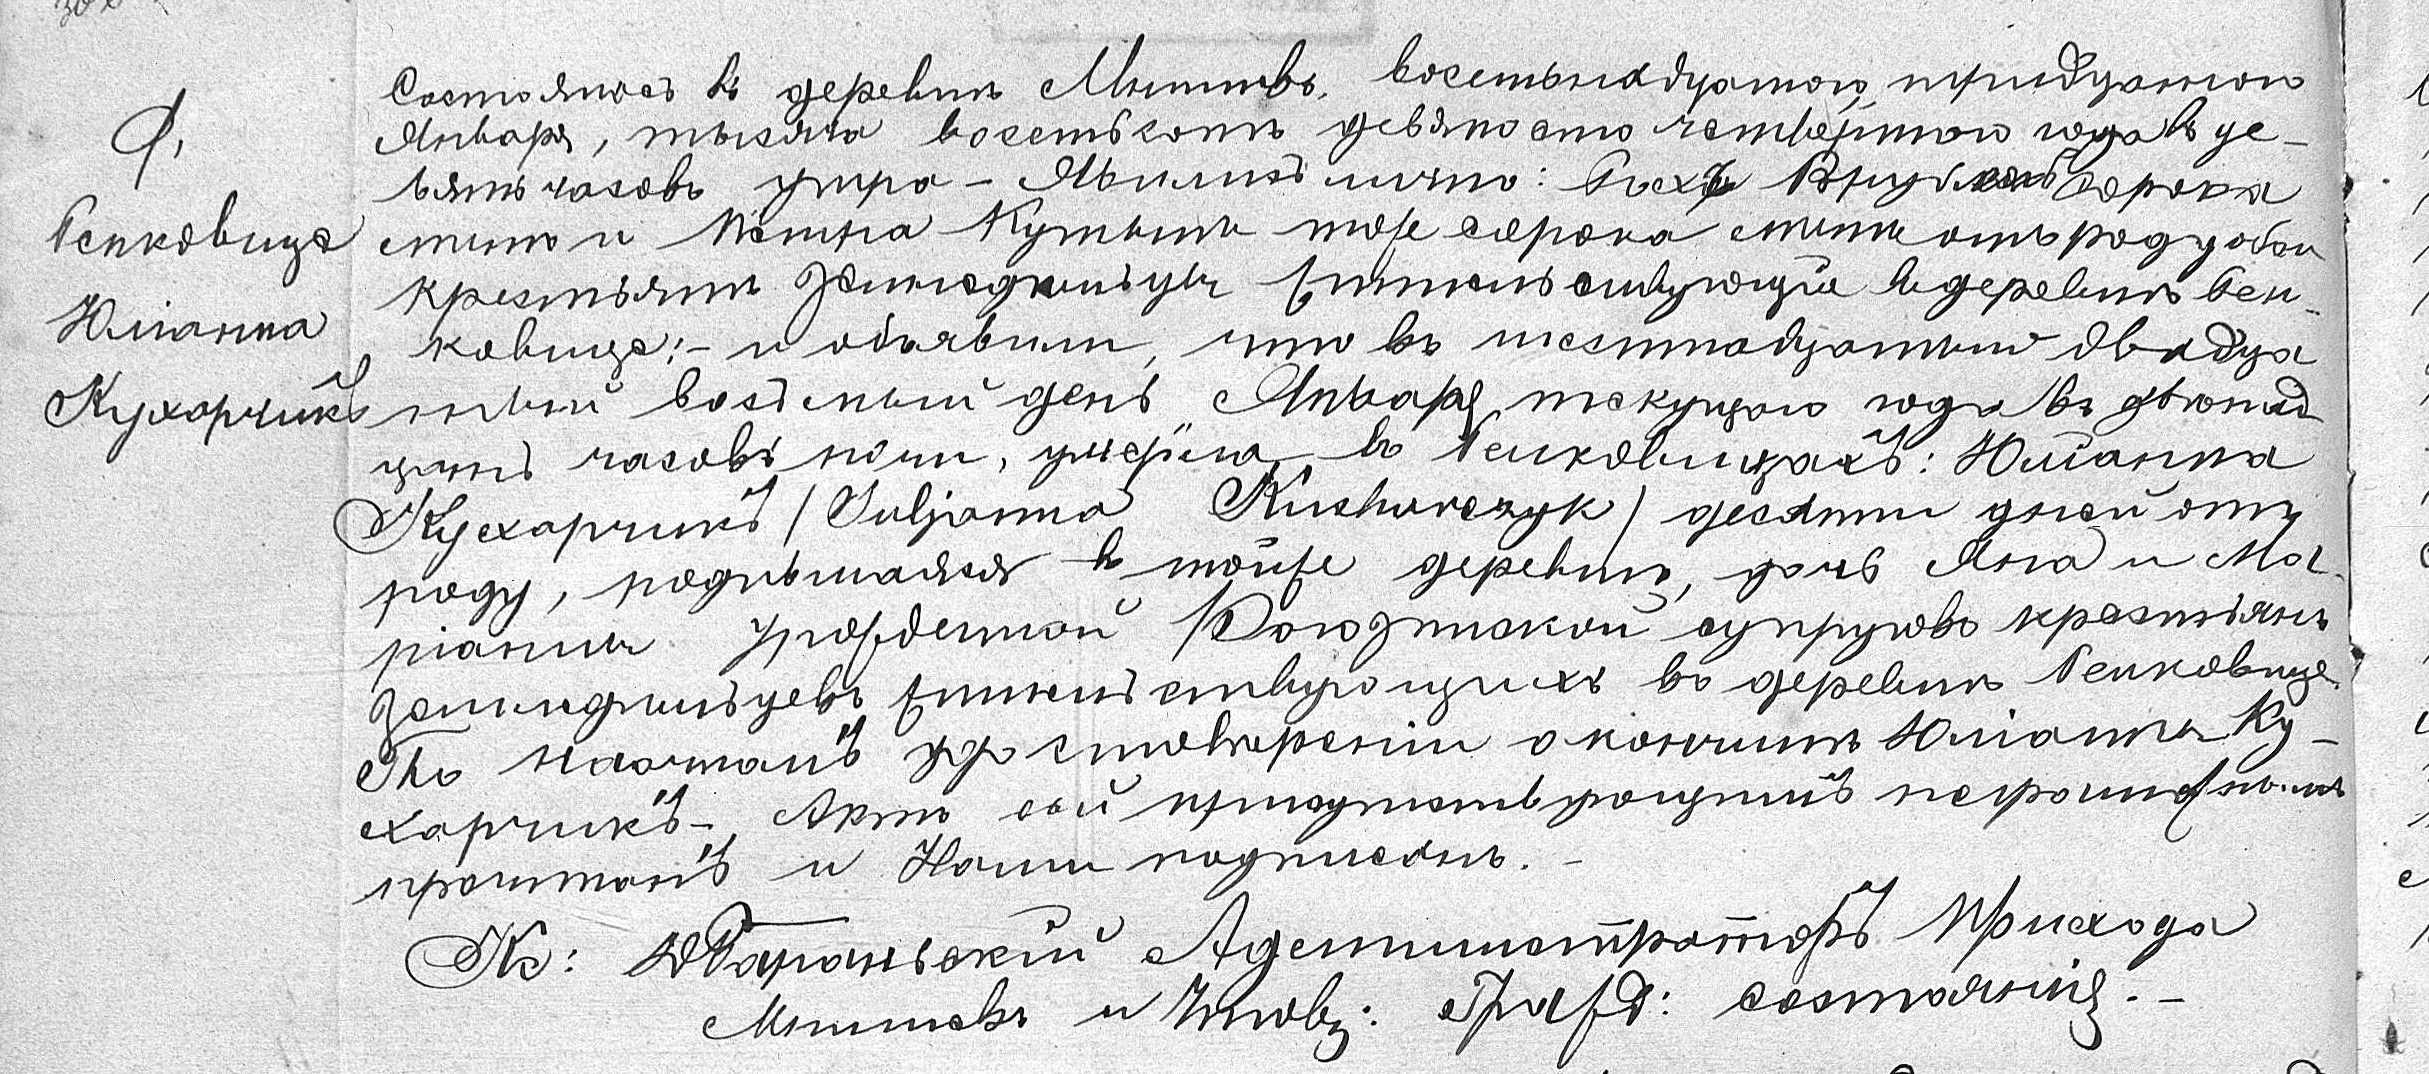 9.
Бенковице
Юліанна
Кухарчикъ
Состоялось въ деревнѣ Мнишекъ, восемьнадцатаго тридцатого
Января, тысяча восемьсотъ девяносто четвертого года въ де-
вять часовъ утра – Явились лично: сорока
лѣтъ и Петръ тоже сорока лѣтъ отъ роду оба
крестьяне земледѣльцы жительствующіе въ деревнѣ Бен-
ковице; – и объявили, что въ шестнадцатый двадца
тый восьмый день Января текущаго года въ двѣнад
цать часовъ ночи, умерла въ Бенковицахъ: Юліанна
Кухарчикъ /Juljanna Kucharczyk/ десяти дней отъ
роду, родившаяся въ тойже деревнѣ, дочь Яна и Ма-
ріанны урожденной супруговъ крестьянъ
земледѣльцевъ жительствующихъ въ деревнѣ Бенковице.
По настоящемъ удостовѣреніи о кончинѣ Юліанны Ку-
харчикъ –, Актъ сей присутствующимъ неграмотнымъ
прочитанъ и Нами подписанъ. –
Кс: Администраторъ Прихода
Мнишекъ и Чиновъ: Гражд: состоянія. –